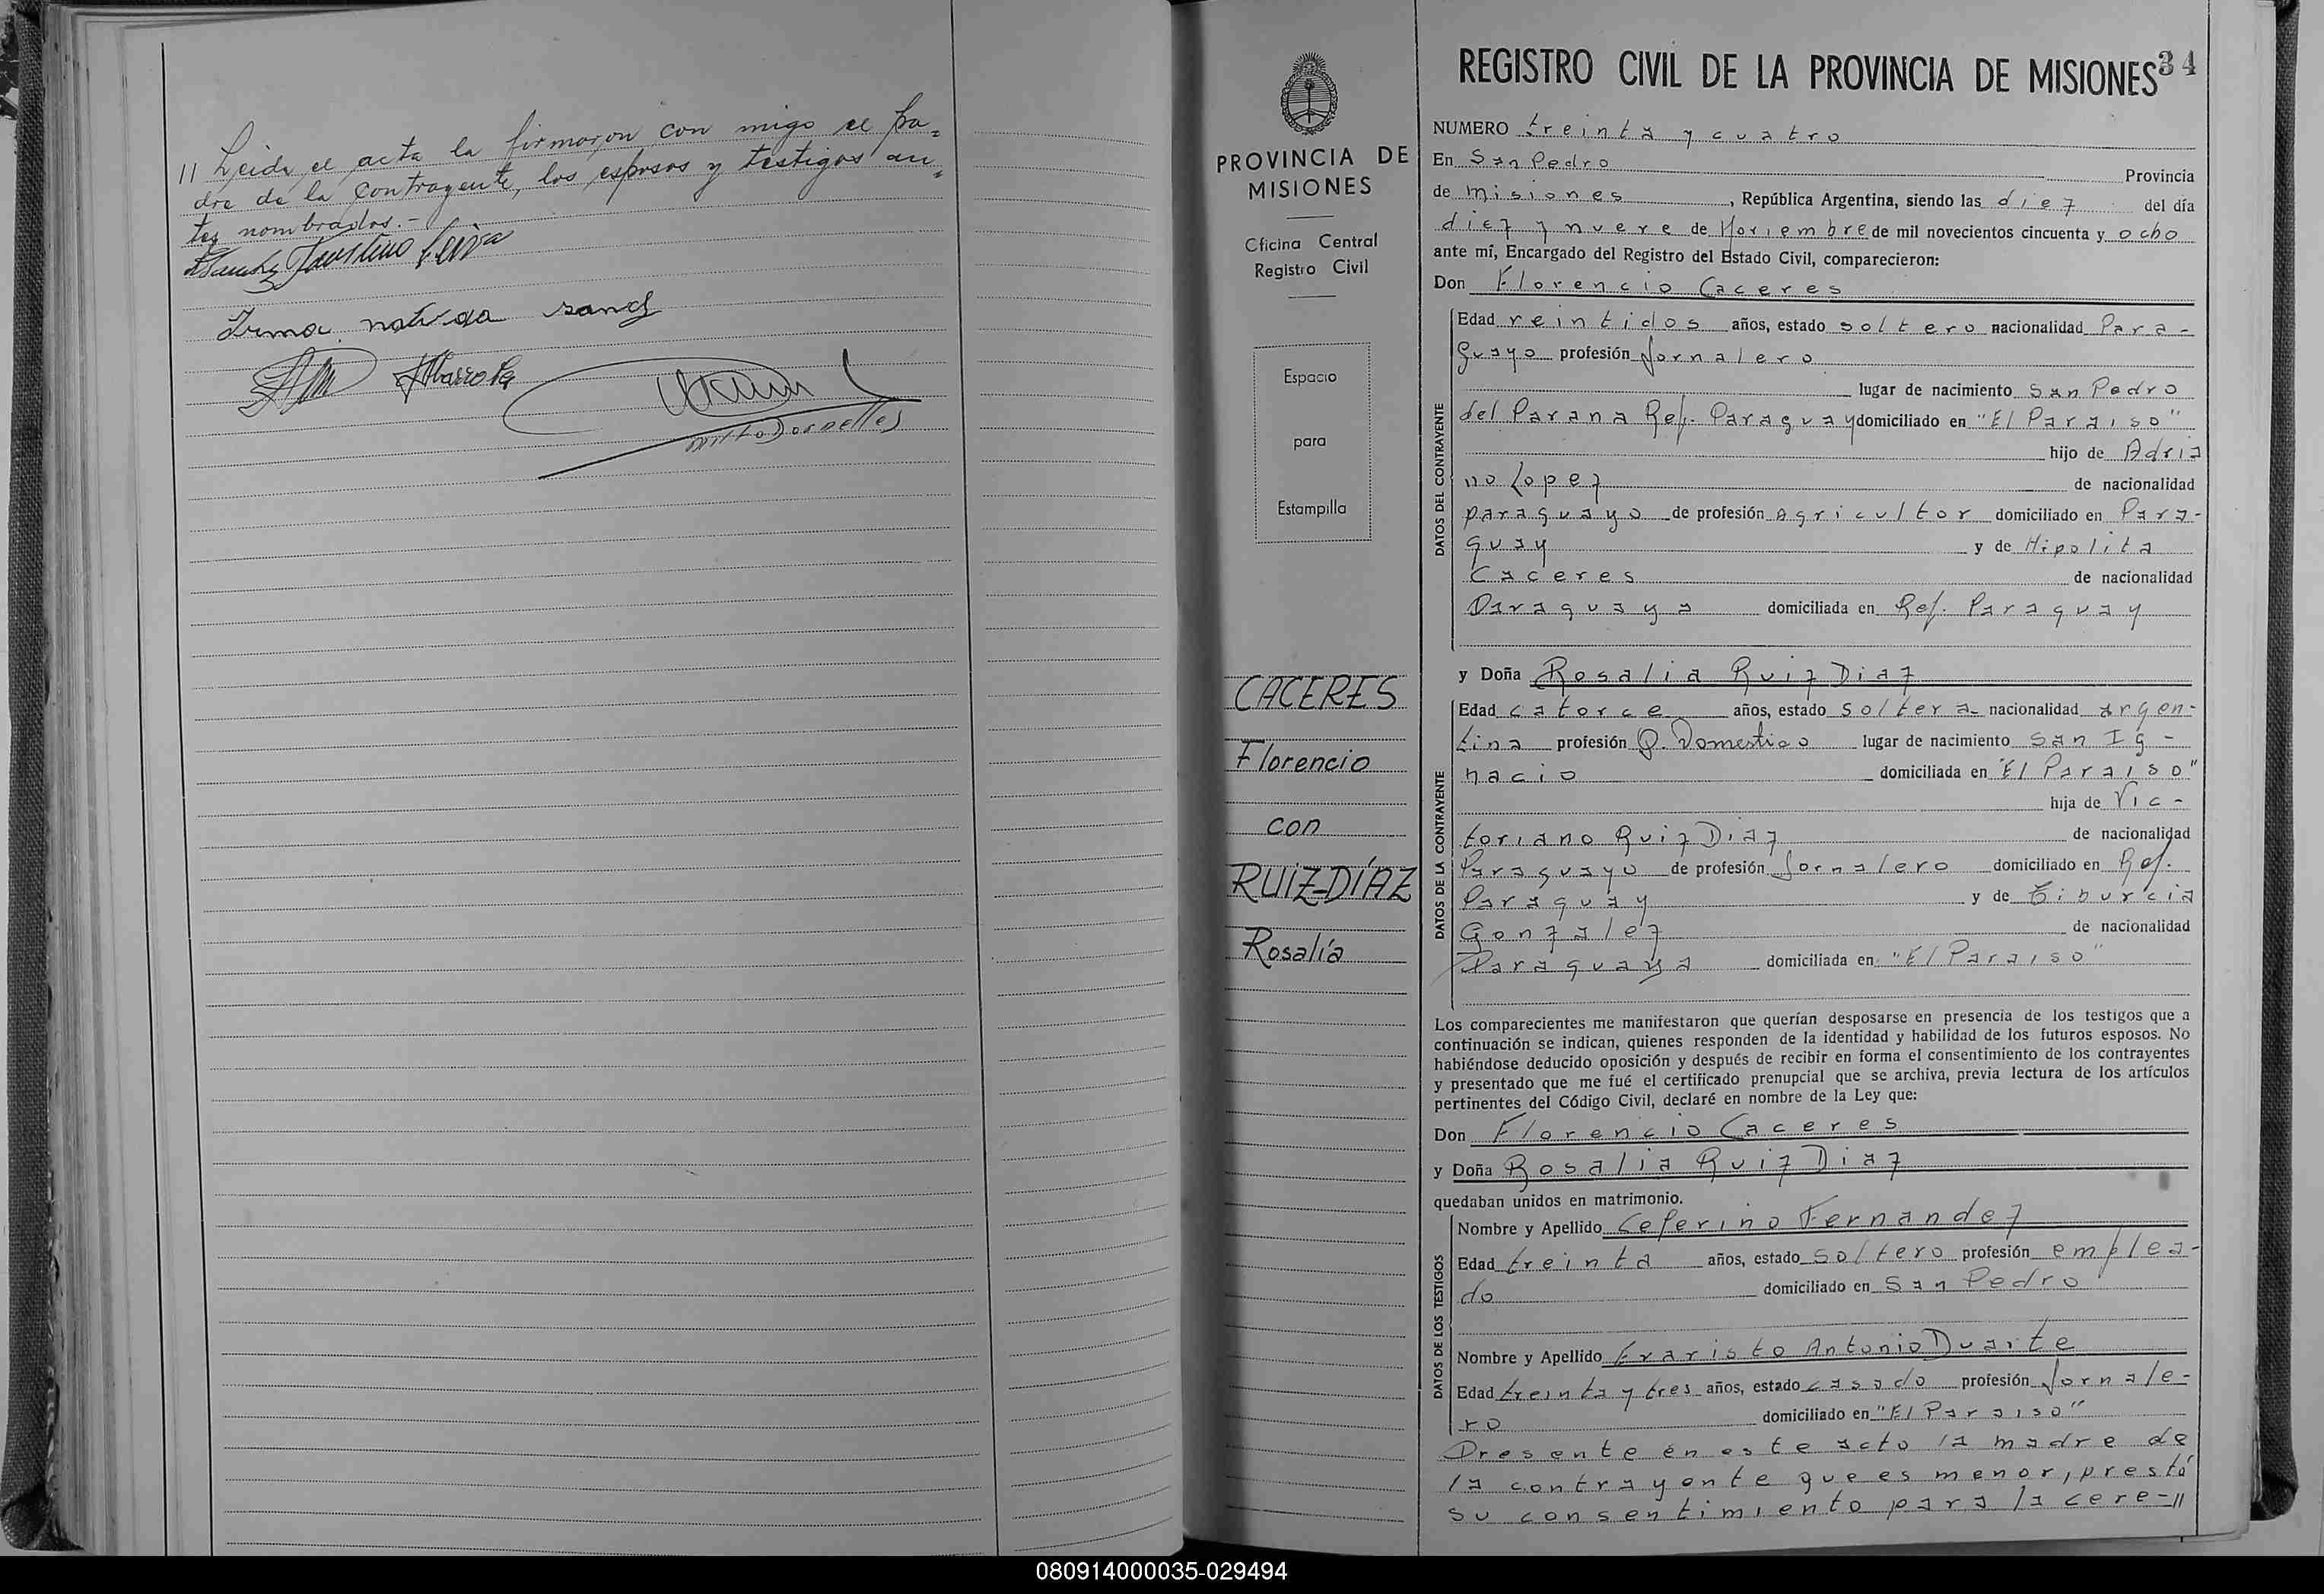 // Leida el acta la firmaron con migo el pa=
dre de la contrayente, los esposos y testigos an=
tes nombrados.-
Faustino
Irma
PROVINCIA DE
MISIONES
Oficina Central
Registro Civil
Espacio
para
Estampilla
CACERES
Florencio
con
RUIZ-DÍAZ
Rosalía
REGISTRO CIVIL DE LA PROVINCIA DE MISIONES 34
NUMERO treinta y cuatro
En San Pedro Provincia
de Misiones, República Argentina, siendo las diez del día
diez y nueve de Noviembre de mil novecientos cincuenta y ocho
ante mí, Encargado del Registro del Estado Civil, comparecieron:
Don Florencio Caceres
DATOS DEL CONTRAYENTE
Edad veintidos años, estado soltero nacionalidad Para-
guayo profesión Jornalero
lugar de nacimiento San Pedro
del Parana Rep. Paraguay domiciliado en "El Paraiso"
hijo de Adria
no Lopez de nacionalidad
paraguayo de profesión Agricultor domiciliado en Para-
guay y de Hipolita
Caceres de nacionalidad
Paraguaya domiciliada en Rep. Paraguay
y Doña Rosalia Ruiz Diaz
DATOS DE LA CONTRAYENTE
Edad catorce años, estado soltera nacionalidad argen-
tina profesión Q. Domestico lugar de nacimiento San Ig-
nacio domiciliada en "El Paraiso"
hija de Vic-
toriano Ruiz Diaz de nacionalidad
Paraguayo de profesión Jornalero domiciliado en Rep.
Paraguay y de Tiburcia
Gonzalez de nacionalidad
Paraguaya domiciliada en "El Paraiso"
Los comparecientes me manifestaron que querían desposarse en presencia de los testigos que a
continuación se indican, quienes responden de la identidad y habilidad de los futuros esposos. No
habiéndose deducido oposición y después de recibir en forma el consentimiento de los contrayentes
y presentado que me fué el certificado prenupcial que se archiva, previa lectura de los artículos
pertinentes del Código Civil, declaré en nombre de la Ley que:
Don Florencio Caceres
y Doña Rosalia Ruiz Diaz
quedaban unidos en matrimonio.
DATOS DE LOS TESTIGOS
Nombre y Apellido Ceferino Fernandez
Edad treinta años, estado soltero profesión emplea-
do domiciliado en San Pedro
Nombre y Apellido Evaristo Antonio Duarte
Edad treinta y tres años, estado casado profesión Jornale-
ro domiciliado en "El Paraiso"
Presente en este acto la madre de
la contrayente que es menor, prestó
su consentimiento para la cere-//
080914000035-029494